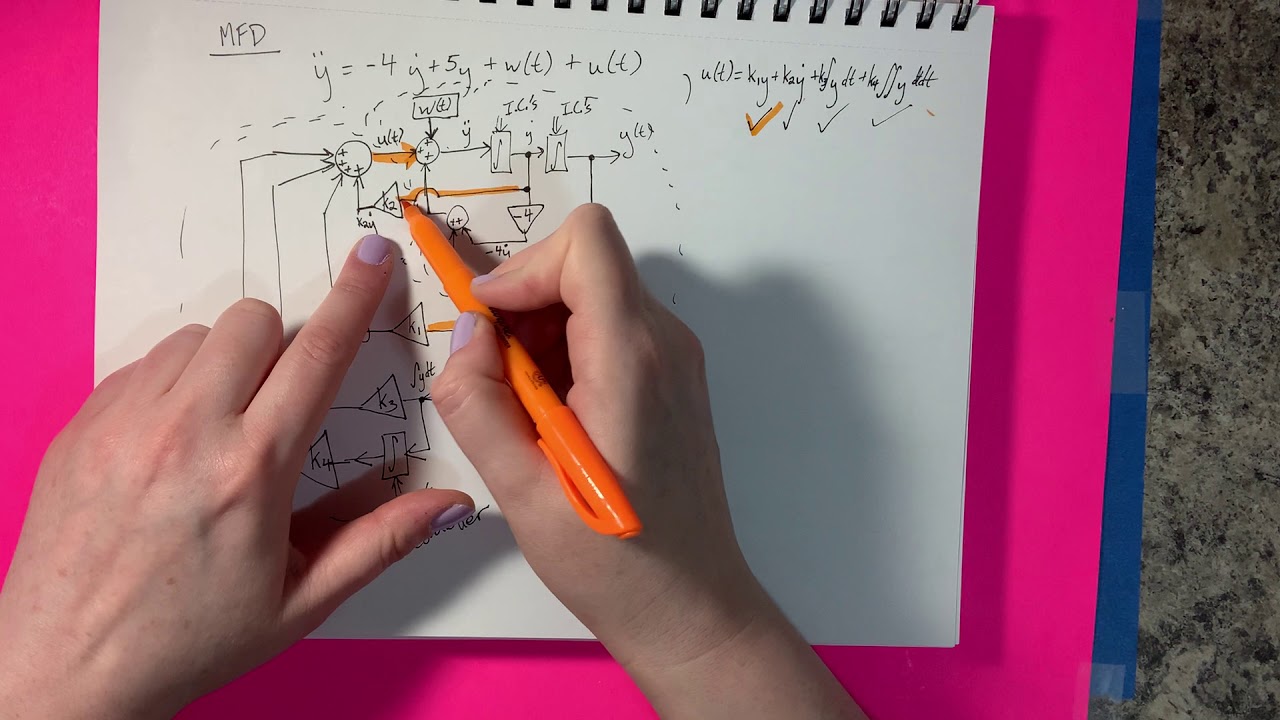 MFD
ÿ = -4 ẏ + 5y + w(t) + u(t) , u(t) = k₁y + k₂ẏ + k₃∫y dt + k₄∬y dtdt
w(t) I.C.'s I.C.'s
u(t) ÿ ∫ ẏ ∫ y(t)
+ + + + + +
k₂ + + -4
k₂ẏ -4ẏ
k₁
∫ydt
k₃
k₄ ∫